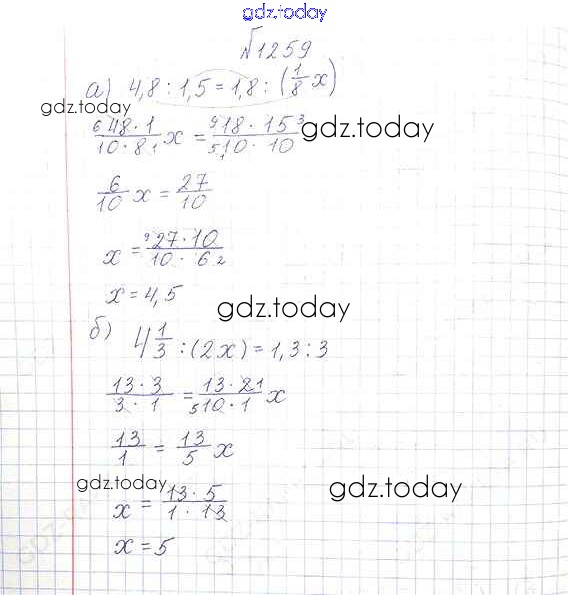 gdz.today
№1259
а) 4,8 : 1,5 = 1,8 : (1/8 x)
gdz.today
6 48·1 / 10·8 1 x = 9 18·15 3 / 5 10·10
gdz.today
6/10 x = 27/10
x = 9 27·10 / 10·6 2
x = 4,5
gdz.today
б) 4 1/3 : (2x) = 1,3 : 3
13·3 / 3·1 = 13·2 1 / 5 10·1 x
13/1 = 13/5 x
gdz.today
x = 13·5 / 1·13
gdz.today
x = 5